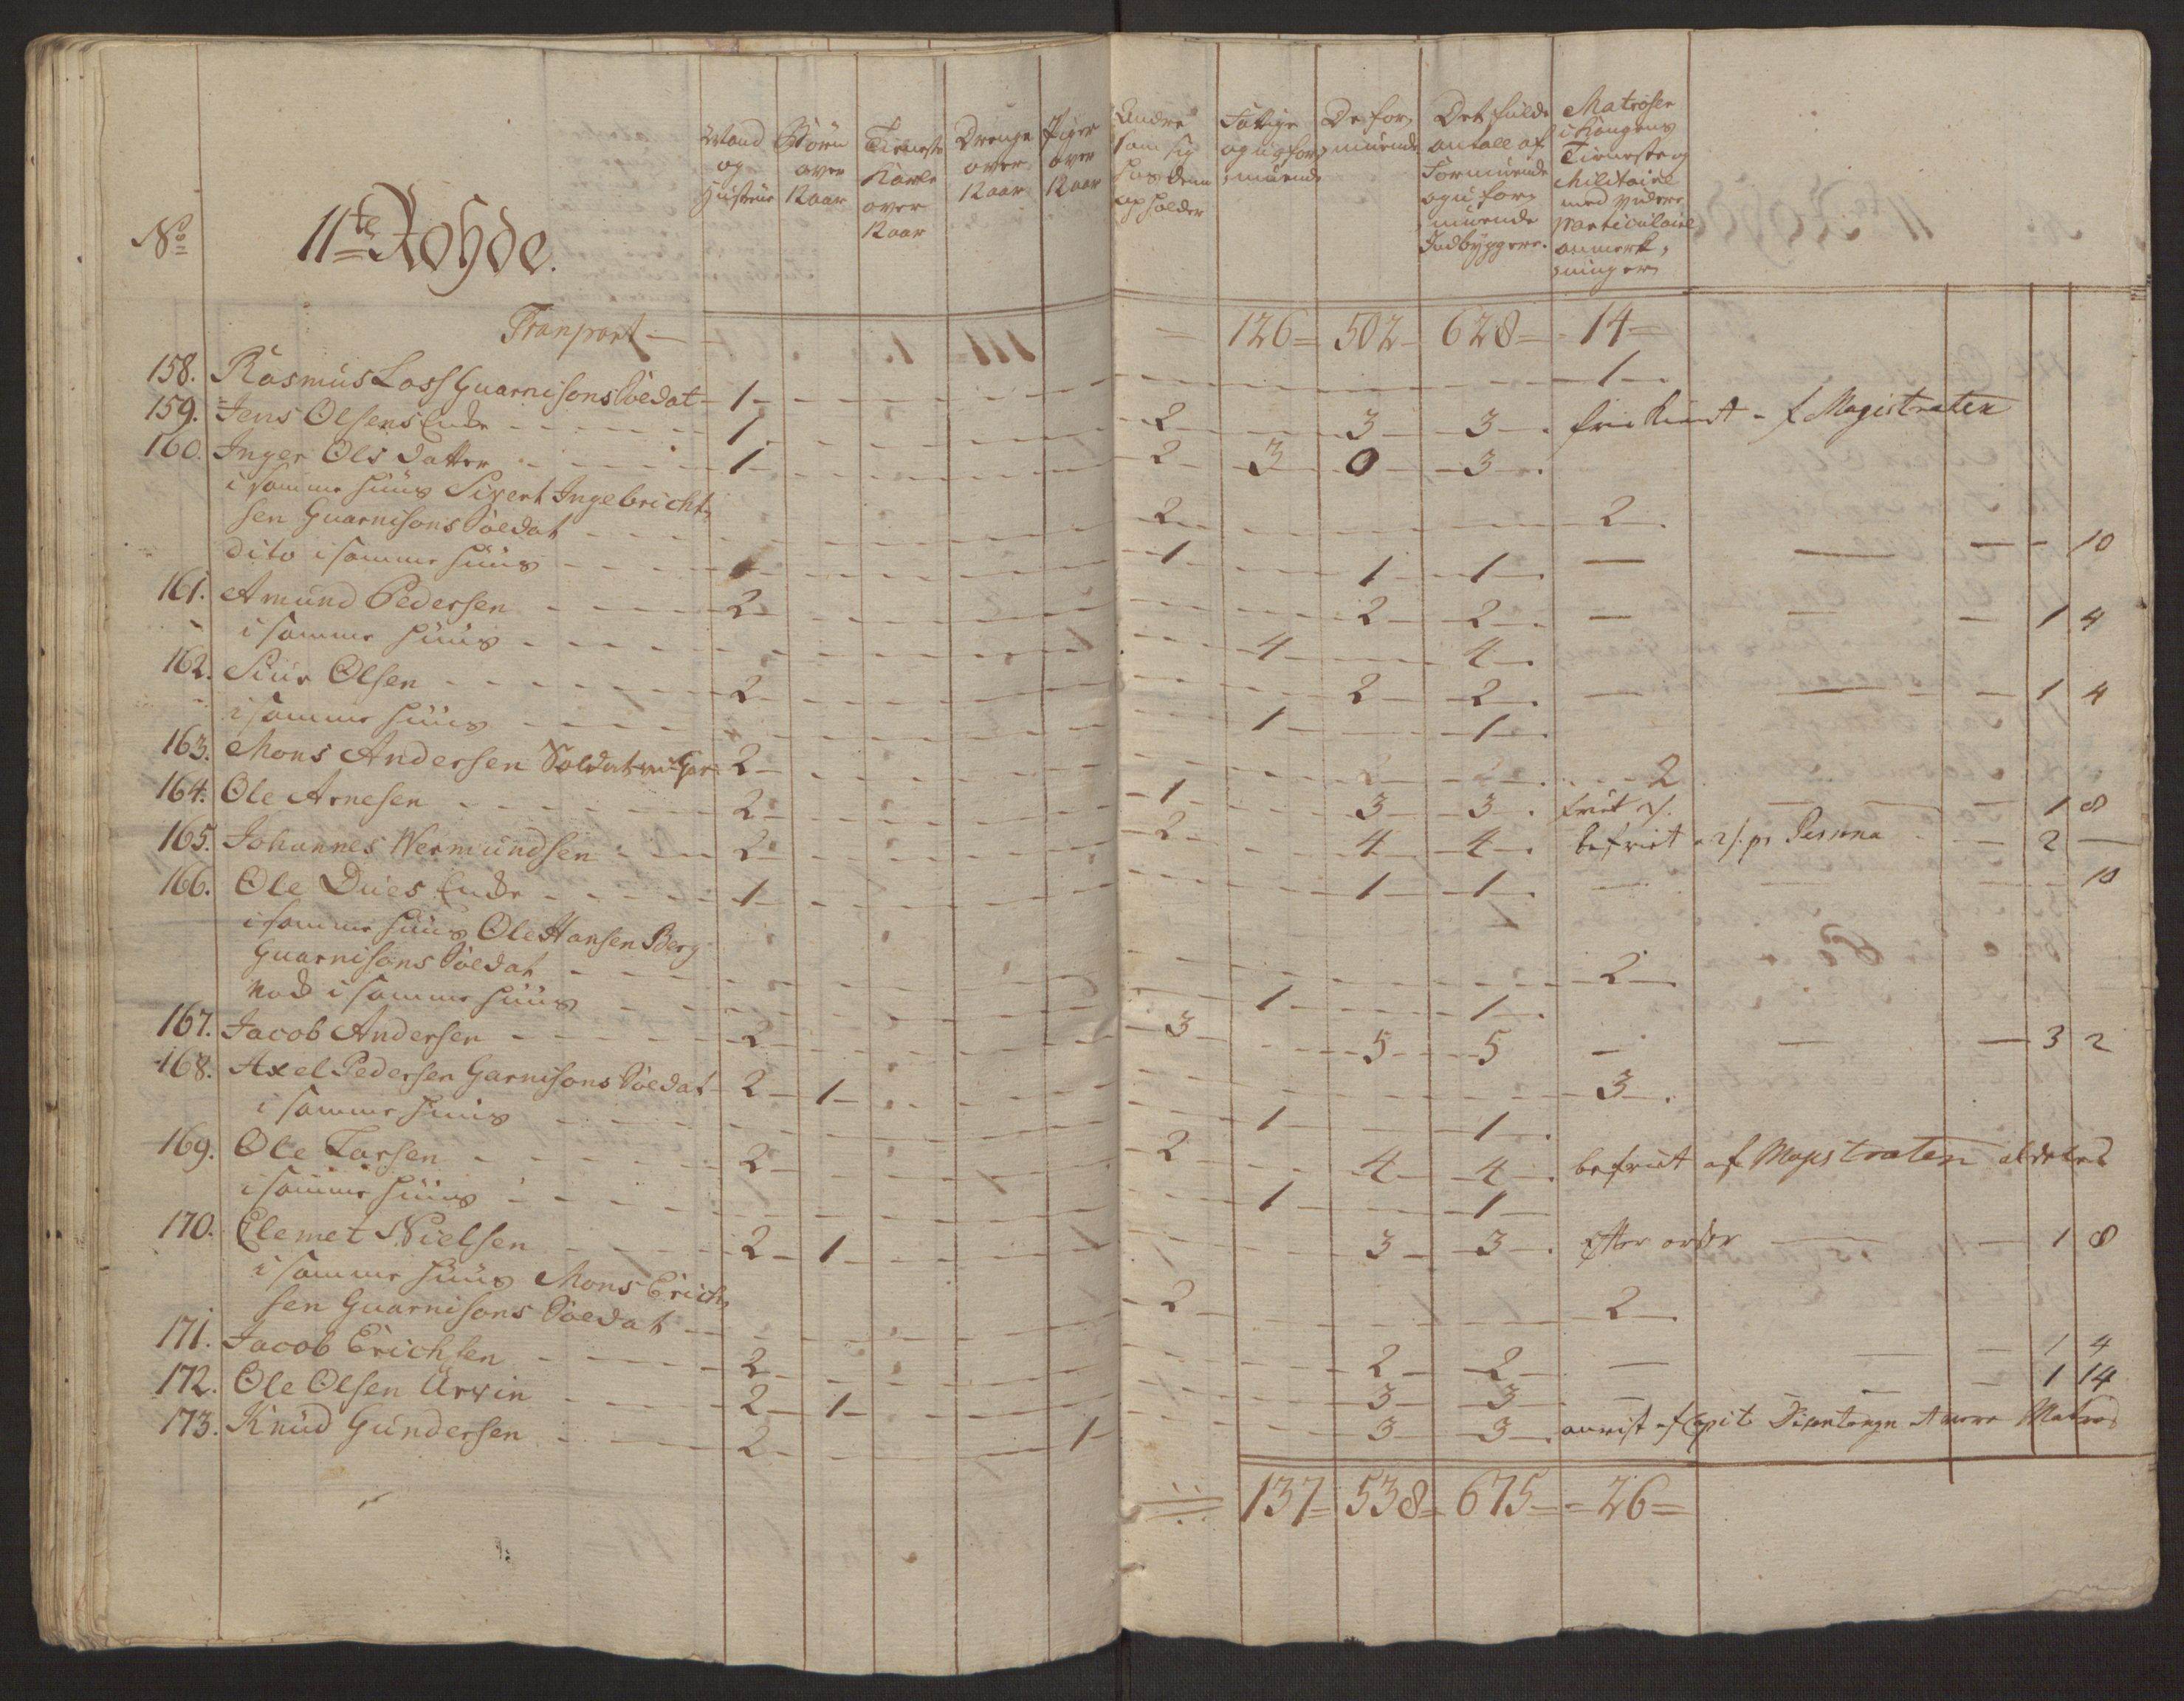 No
11te Rohde.
Mand og Hustrue
Børn over 12 aar
Tieneste Karle over 12 aar
Drenge over 12 aar
Piger over 12 aar
Andre som sig hos dem opholder
Fattige og uformuende
De formuende
Det fulde antall af Formuende og uformuende Indbyggere.
Matroser i Kongens Tieneste og Militaire med videre particulaire anmerkninger
Transport — 126 = 502 - 628 = 14 =
158. Rasmus Lass Guarnisons Soldat - 1 - 1 -
159. Jens Olsens Enke 1. 2 3 3 fri kiendt af Magistraten
160. Inger Olsdatter 1 2 3 0 3
i samme huus Sivert Ingebricht,
sen Guarnisons Soldat 2 2
dito i samme huus 1 1 1 — — 10
161. Amund Pedersen 2 2 2 — — 1 4
i samme huus 4 4
162. Siur Olsen 2 2 2 — — 1 4
i samme huus 1 1
163. Mons Andersen Soldat 2 2
164. Ole Arnesen 2 1 3 3 1 8
165. Johannes Wermundsen 2 2 4 4 befriet 2 —
166. Ole Dues Enke 1 1 1 — — 10
i samme huus Ole Hansen Berg
Guarnisons Soldat 2
nok i samme huus 1 1
167. Jacob Andersen 2 3 5 5 — — 3 2
168. Axel Pedersen Garnisons Soldat 2 1 3
i samme huus 1 1
169. Ole Larsen 2 2 4 4 befriet af Magistraten aldeles
i samme huus 1 1
170. Clemet Nielsen 2 1 3 3 efter order 1 8
i samme huus Mons Erich,
sen Guarnisons Soldat 2 2
171. Jacob Erichsen 2 2 2 — — 1 4
172. Ole Olsen Urvin 2 1 3 3 — — 1 14
173. Knud Gundersen 2 1 3 3 anvist af Matros
137 = 538 = 675 = 26 =